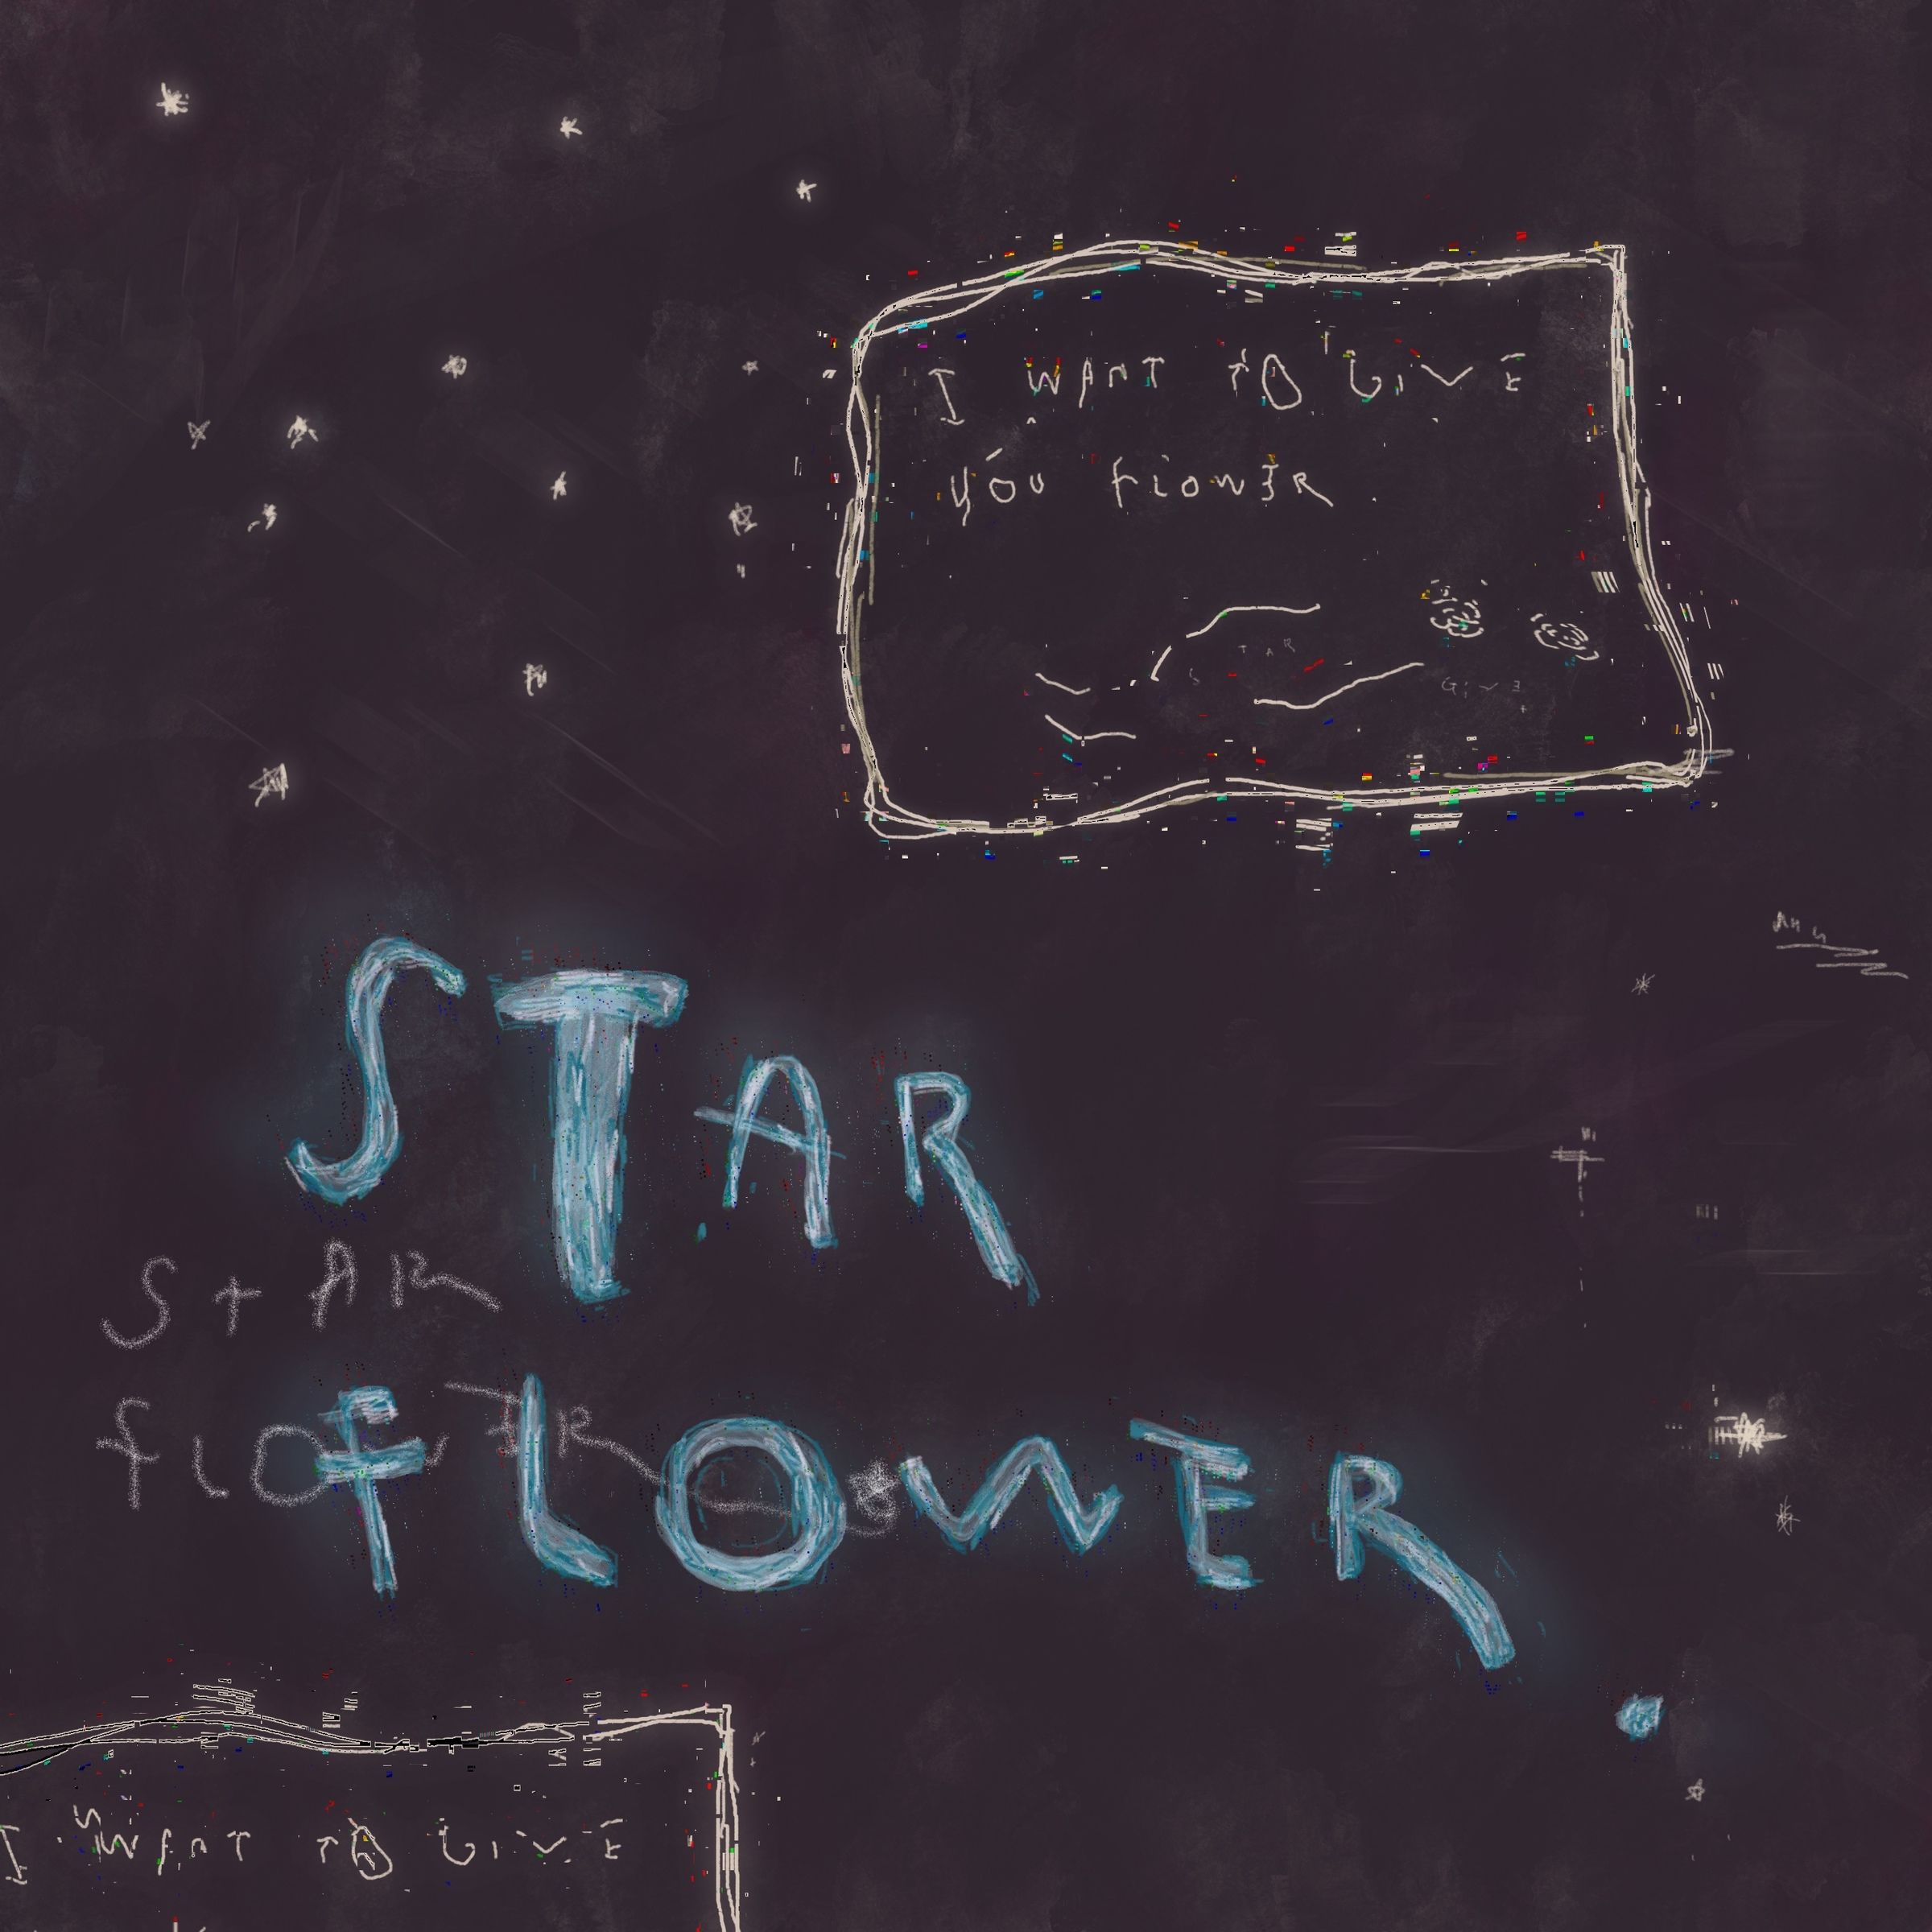 I WANT TO GIVE
YOU FLOWER
STAR
GIVE
STAR
STAR
FLOWER
FLOWER
I WANT TO GIVE